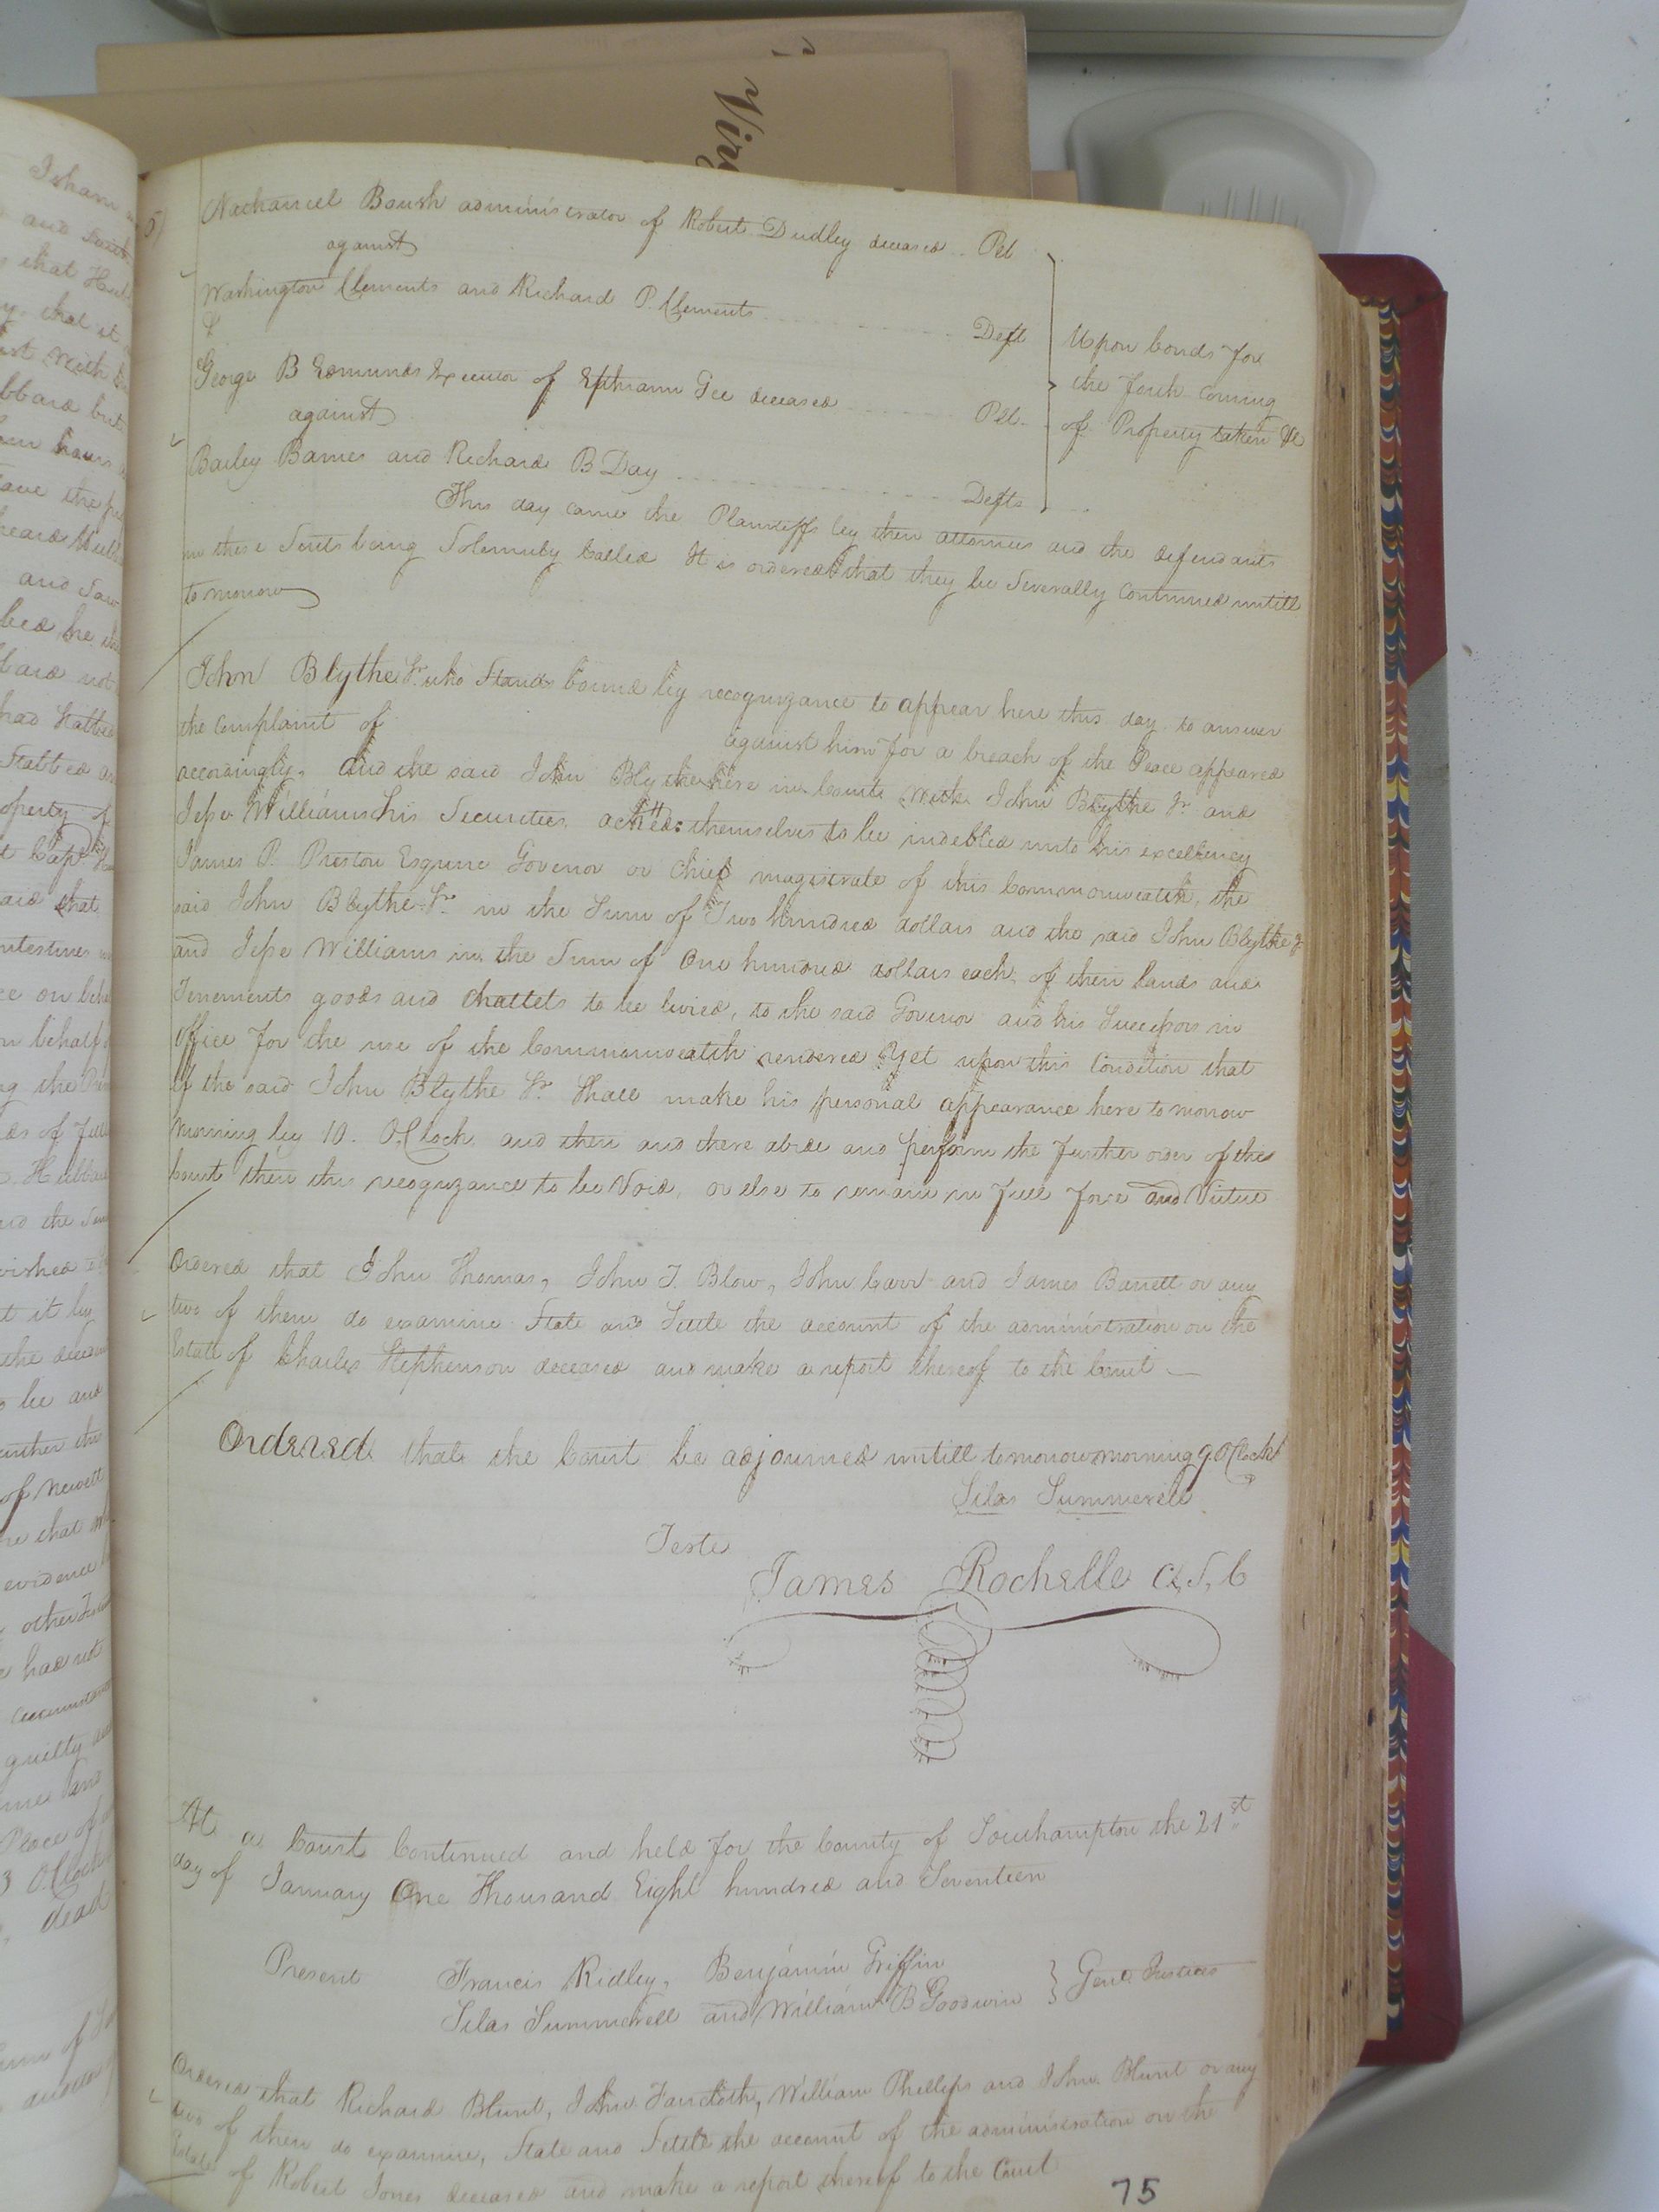 Virg
Nathaniel Boush administrator of Robert Dudley deceased .. Plt
against
Washington Clements and Richard P. Clements Deft
&
George B Edmunds Executor of Ephraim Gee deceased Plt
against
Bailey Barnes and Richard B Day Defts
Upon bonds for
the forth coming
of Property taken &c
This day came the Plaintiffs by their attornies and the defendants
in these Suits being Solemnly Called It is ordered that they be Severally Continued untill
to morrow
John Blythe Sr. who Stands bound by recognizance to appear here this day to answer
the Complaint of against him for a breach of the Peace appeared
accordingly, and the said John Blythe here in Court with John Blythe Jr. and
Jesse Williams his Securities, ackd. themselves to be indebted unto his excellency
James P. Preston Esquire Govenor or Chief magistrate of this Commonwealth, the
said John Blythe Sr. in the Sum of Two hundred dollars and the said John Blythe Jr
and Jesse Williams in the Sum of One hundred dollars each, of their lands and
Tenements goods and Chattels to be levied, to the said Govenor and his Successors in
office for the use of the Commonwealth rendered Yet upon this Condition that
if the said John Blythe Sr. Shall make his personal appearance here to morrow
Morning by 10. OClock, and then and there abide and perform the further order of the
Court then this recognizance to be Void, or else to remain in full force and Virtue
Ordered that John Thomas, John T. Blow, John Carr and James Barrett or any
two of them do examine State and Settle the account of the administration on the
Estate of Charles Stephenson deceased and make a report thereof to the Court
Ordered that the Court be adjourned untill tomorrow morning 9 OClock
Silas Summerell
Teste
James Rochelle C.S.C
At a Court Continued and held for the County of Southampton the 21st
day of January One Thousand Eight hundred and Seventeen
Present Francis Ridley, Benjamin Griffin
Silas Summerell and William B Goodwin } Gent. Justices
Ordered that Richard Blunt, John Faircloth, William Phillips and John Blunt or any
two of them do examine, State and Settle the account of the administration on the
Estate of Robert Jones deceased and make a report thereof to the Court
75